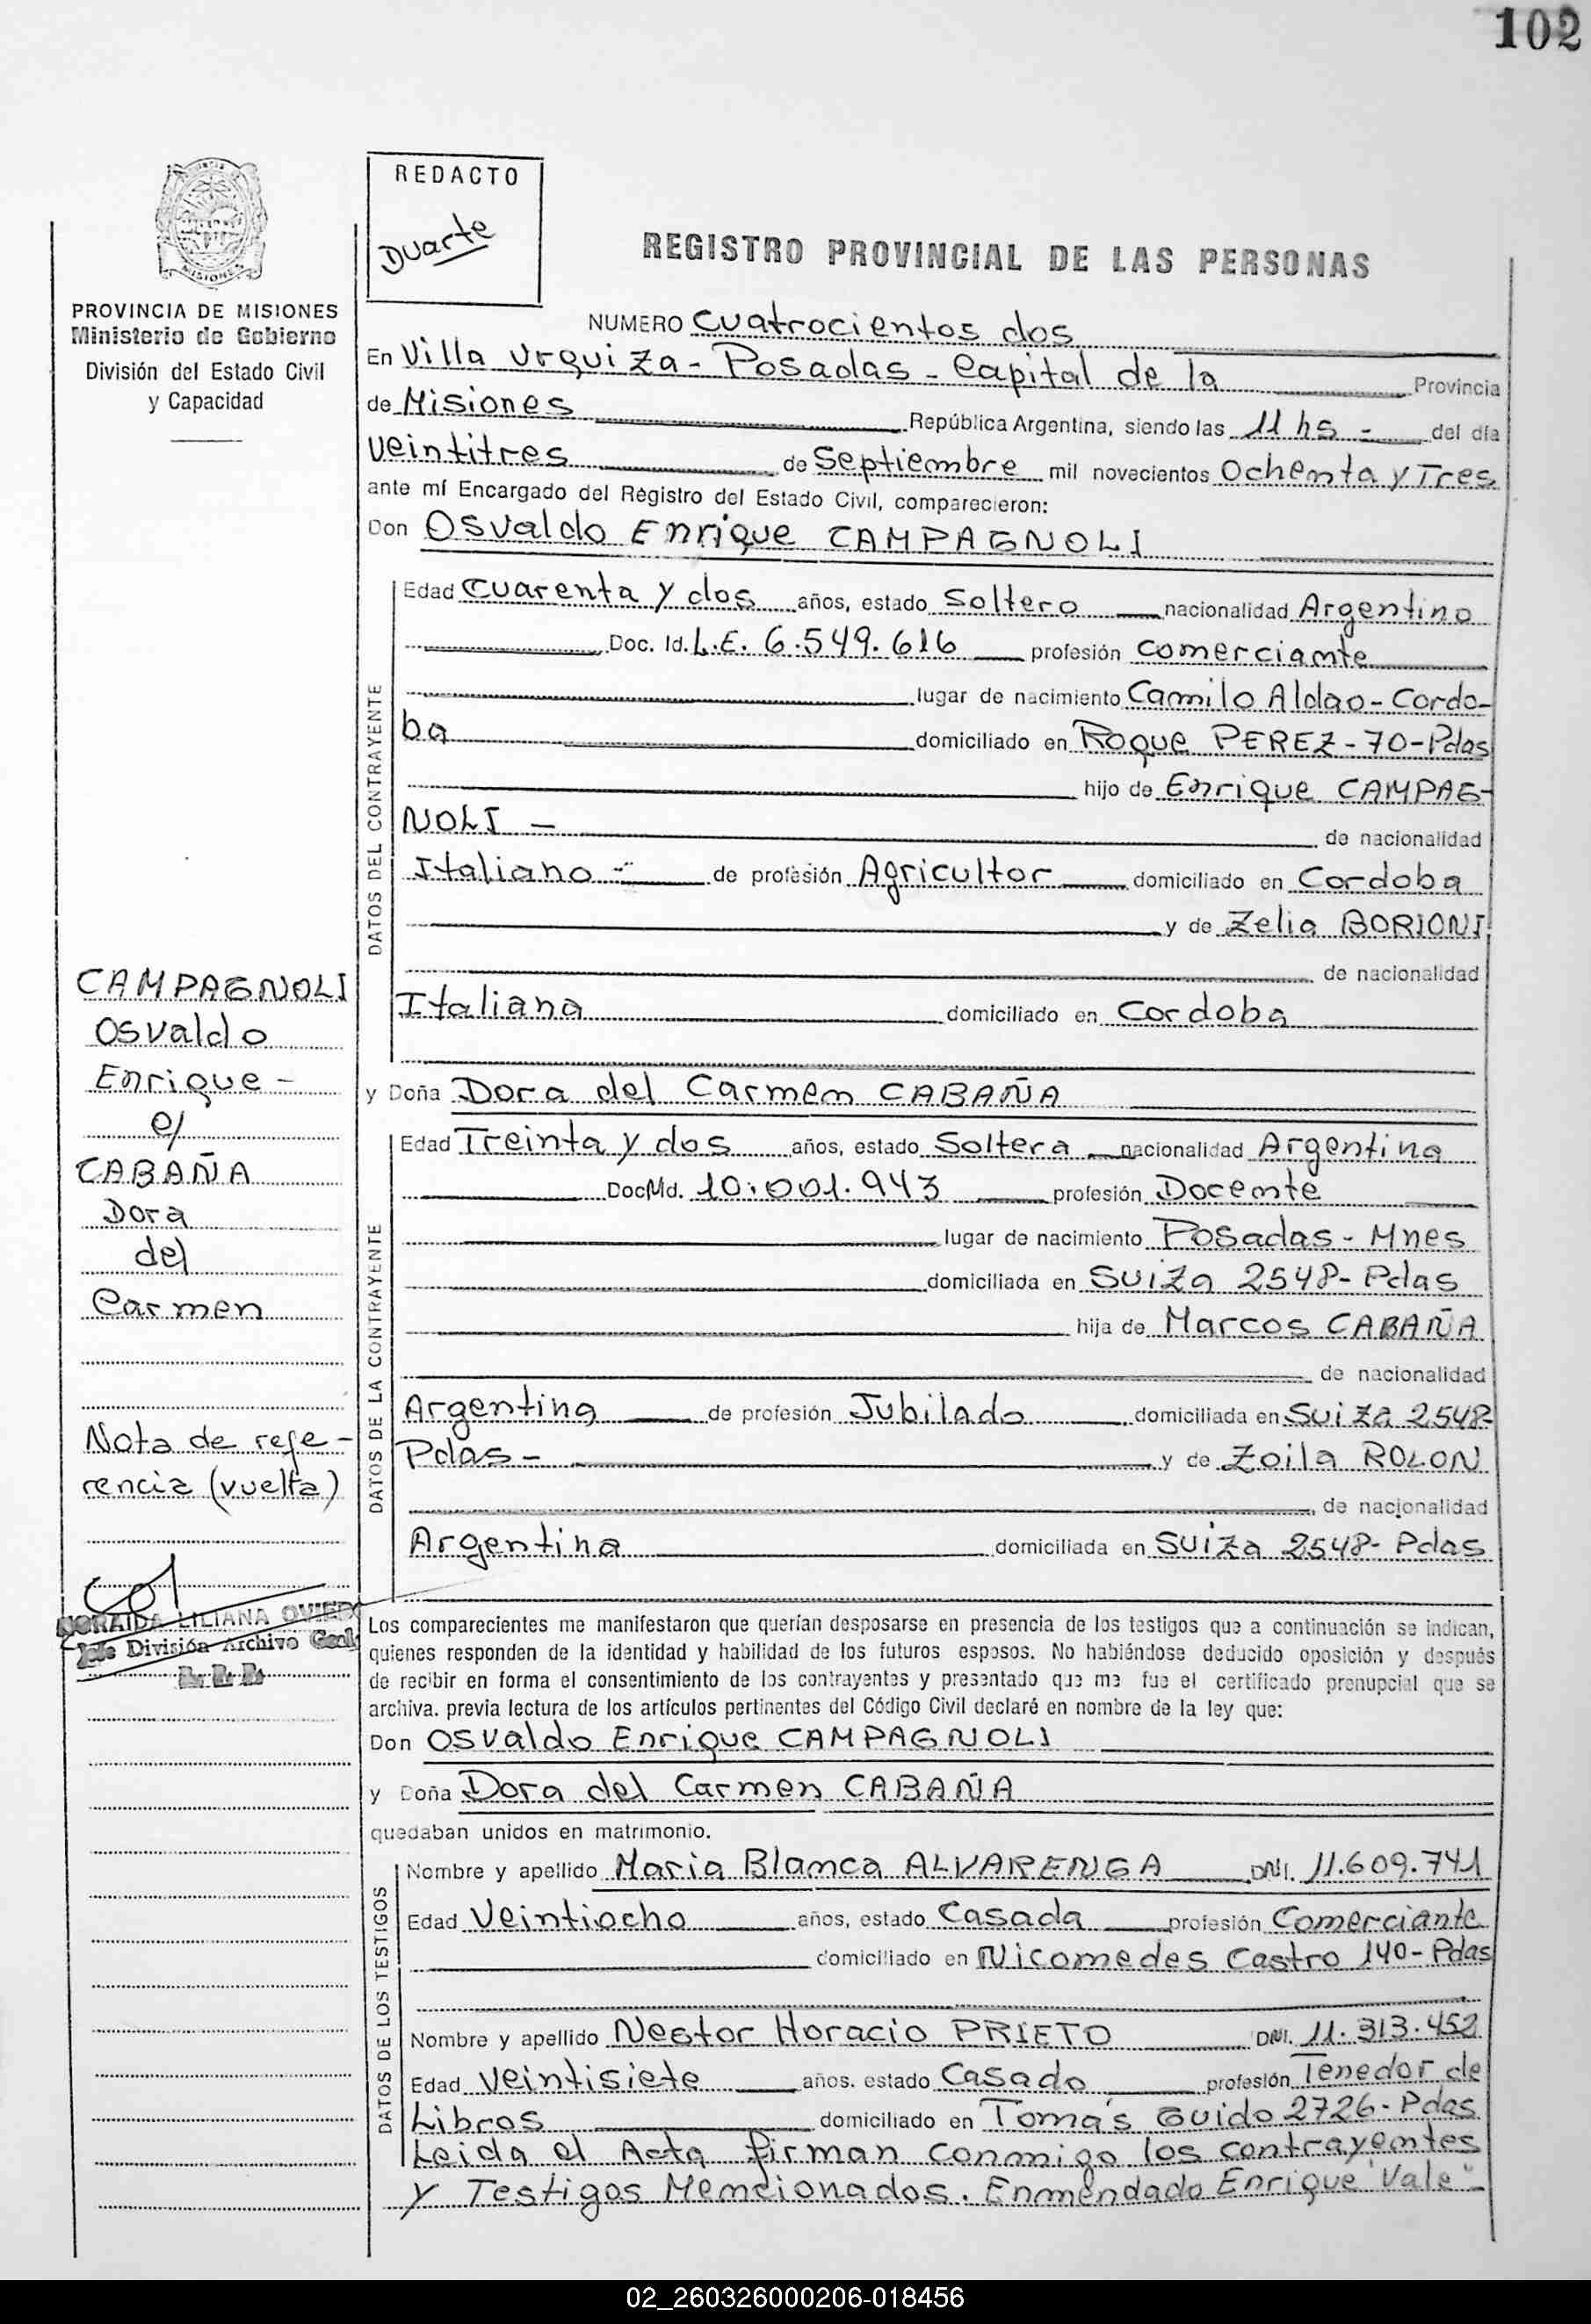 102
REDACTO
Duarte
MISIONES
PROVINCIA DE MISIONES
Ministerio de Gobierno
División del Estado Civil
y Capacidad
REGISTRO PROVINCIAL DE LAS PERSONAS
NUMERO Cuatrocientos dos
En Villa Urquiza - Posadas - Capital de la Provincia
de Misiones República Argentina, siendo las 11 hs - del día
veintitres de Septiembre mil novecientos Ochenta y Tres
ante mí Encargado del Registro del Estado Civil, comparecieron:
Don Osvaldo Enrique CAMPAGNOLI
DATOS DEL CONTRAYENTE
Edad Cuarenta y dos años, estado Soltero nacionalidad Argentino
Doc. Id. L.E. 6.549.616 profesión Comerciante
lugar de nacimiento Camilo Aldao - Cordo-
ba domiciliado en Roque PEREZ - 70 - Pdas
hijo de Enrique CAMPAG-
NOLI - de nacionalidad
Italiano - de profesión Agricultor domiciliado en Cordoba
y de Zelia BORIONI
de nacionalidad
Italiana domiciliado en Cordoba
y Doña Dora del Carmen CABAÑA
DATOS DE LA CONTRAYENTE
Edad Treinta y dos años, estado Soltera nacionalidad Argentina
Doc. Id. 10.001.943 profesión Docente
lugar de nacimiento Posadas - Mnes
domiciliada en Suiza 2548 - Pdas
hija de Marcos CABAÑA
de nacionalidad
Argentina de profesión Jubilado domiciliada en Suiza 2548-
Pdas - y de Zoila ROLON
de nacionalidad
Argentina domiciliada en Suiza 2548 - Pdas
CAMPAGNOLI
Osvaldo
Enrique -
c/
CABAÑA
Dora
del
Carmen
Nota de refe-
rencia (vuelta)
LILIANA OVIEDO
Jefe División Archivo Gral
Los comparecientes me manifestaron que querían desposarse en presencia de los testigos que a continuación se indican,
quienes responden de la identidad y habilidad de los futuros esposos. No habiéndose deducido oposición y después
de recibir en forma el consentimiento de los contrayentes y presentado que me fue el certificado prenupcial que se
archiva. previa lectura de los artículos pertinentes del Código Civil declaré en nombre de la ley que:
Don Osvaldo Enrique CAMPAGNOLI
y Doña Dora del Carmen CABAÑA
quedaban unidos en matrimonio.
DATOS DE LOS TESTIGOS
Nombre y apellido Maria Blanca ALVARENGA DNI. 11.609.741
Edad Veintiocho años, estado Casada profesión Comerciante
domiciliado en Nicomedes Castro 140 - Pdas
Nombre y apellido Nestor Horacio PRIETO DNI. 11.313.452
Edad veintisiete años. estado Casado profesión Tenedor de
Libros domiciliado en Tomás Guido 2726 - Pdas
Leida el Acta firman conmigo los contrayentes
y Testigos Mencionados. Enmendado Enrique "Vale" -
02_260326000206-018456